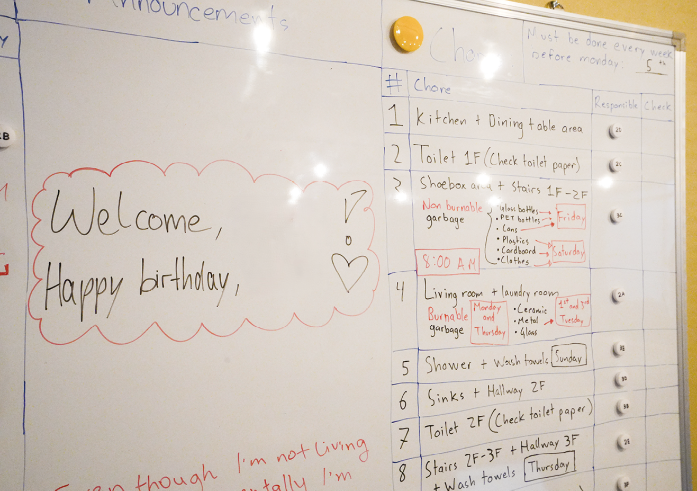 Announcements
Welcome,
Happy birthday,
Even though I'm not living
I'm
Must be done every week
before monday: 5th
# Chore Responsible Check
1 Kitchen + Dining table area
2 Toilet 1F (Check toilet paper)
3 Shoebox area + Stairs 1F-2F
Non burnable
garbage
8:00 AM
• Glass bottles
• PET bottles
• Cans
Friday
• Plastics
• Cardboard
• Clothes
Saturday
4 Living room + laundry room
Burnable
garbage
Monday
and
Thursday
• Ceramic
• Metal
• Glass
1st and 3rd
Tuesday
5 Shower + Wash towels Sunday
6 Sinks + Hallway 2F
7 Toilet 2F (Check toilet paper)
8 Stairs 2F-3F + Hallway 3F
+ Wash towels Thursday